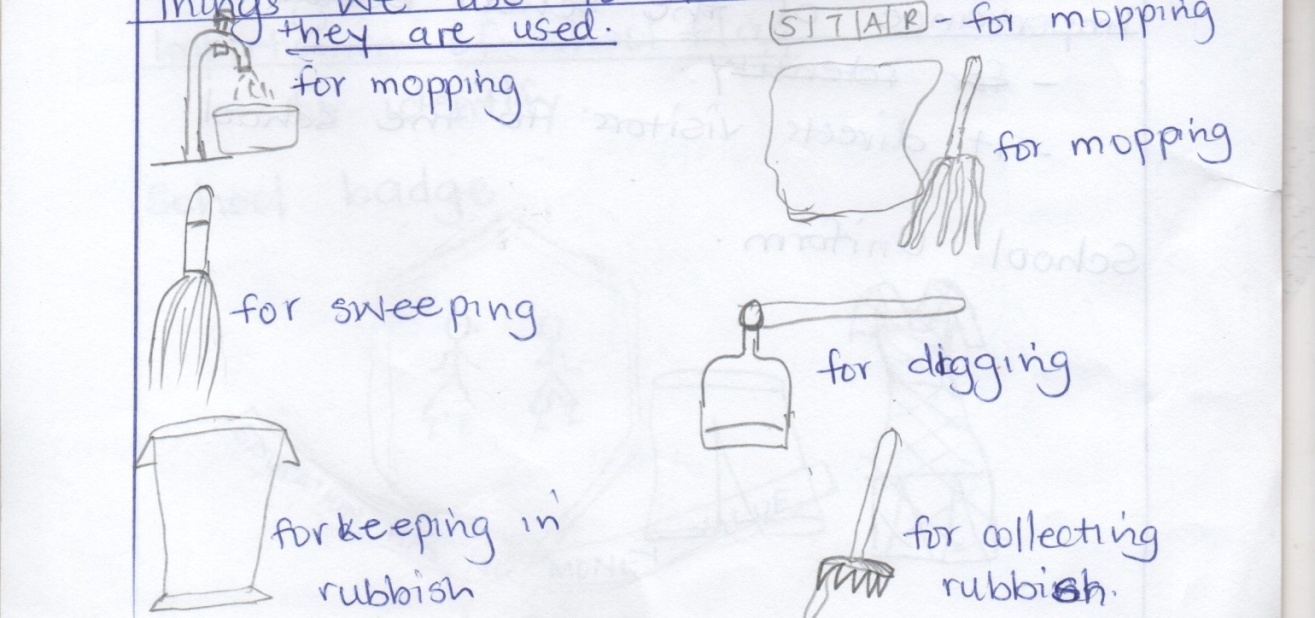 Things we use
they are used.
for mopping
STAR - for mopping
for mopping
for sweeping
for digging
for keeping in
rubbish
for collecting
rubbish.